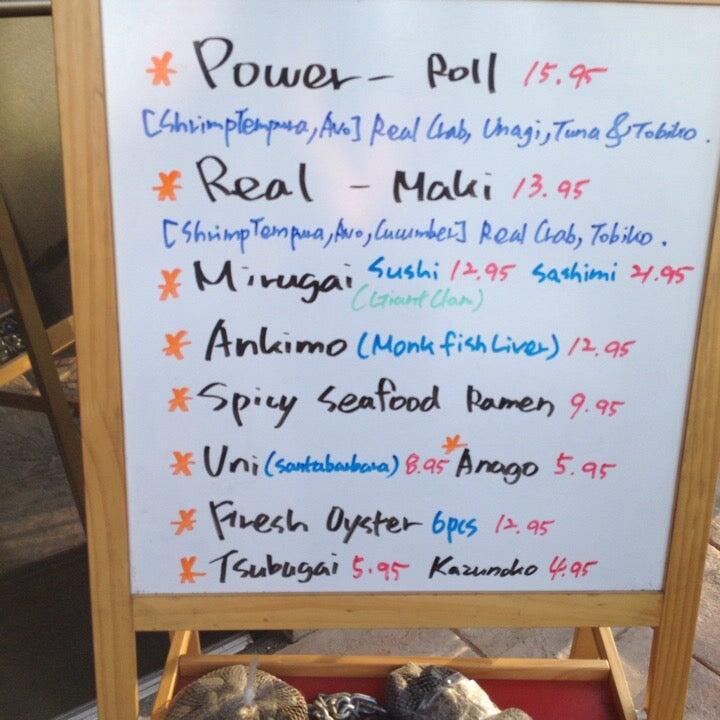 * Power - Roll 15.95
[ShrimpTempura, Avo] Real Crab, Unagi, Tuna & Tobiko.
* Real - Maki 13.95
[ShrimpTempura, Avo, Cucumber] Real Crab, Tobiko.
* Mirugai Sushi 12.95 Sashimi 21.95
(Giant Clam)
* Ankimo (Monk fish Liver) 12.95
* Spicy Seafood Ramen 9.95
* Uni (santabarbara) 8.95 * Anago 5.95
* Fresh Oyster 6pcs 12.95
* Tsubugai 5.95 Kazunoko 4.95